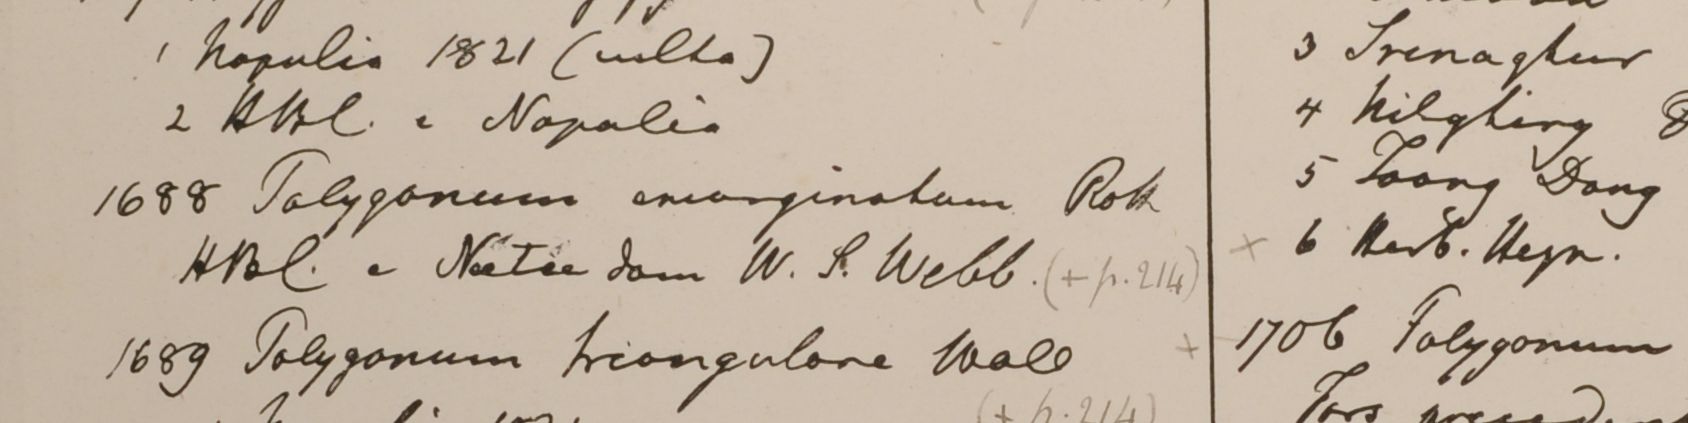 1 Napulia 1821 (culta)
2 HBC. e Napalia
1688 Polygonum emarginatum Roth
HBC. e Neetee dom W. S. Webb. (+ p. 214)
1689 Polygonum triangulare Wall
(+ p. 214)
3 Srenaghur
4 Nilghiry
5 Toong Dong
+ 6 Herb. Heyn.
+ 1706 Polygonum
Fors